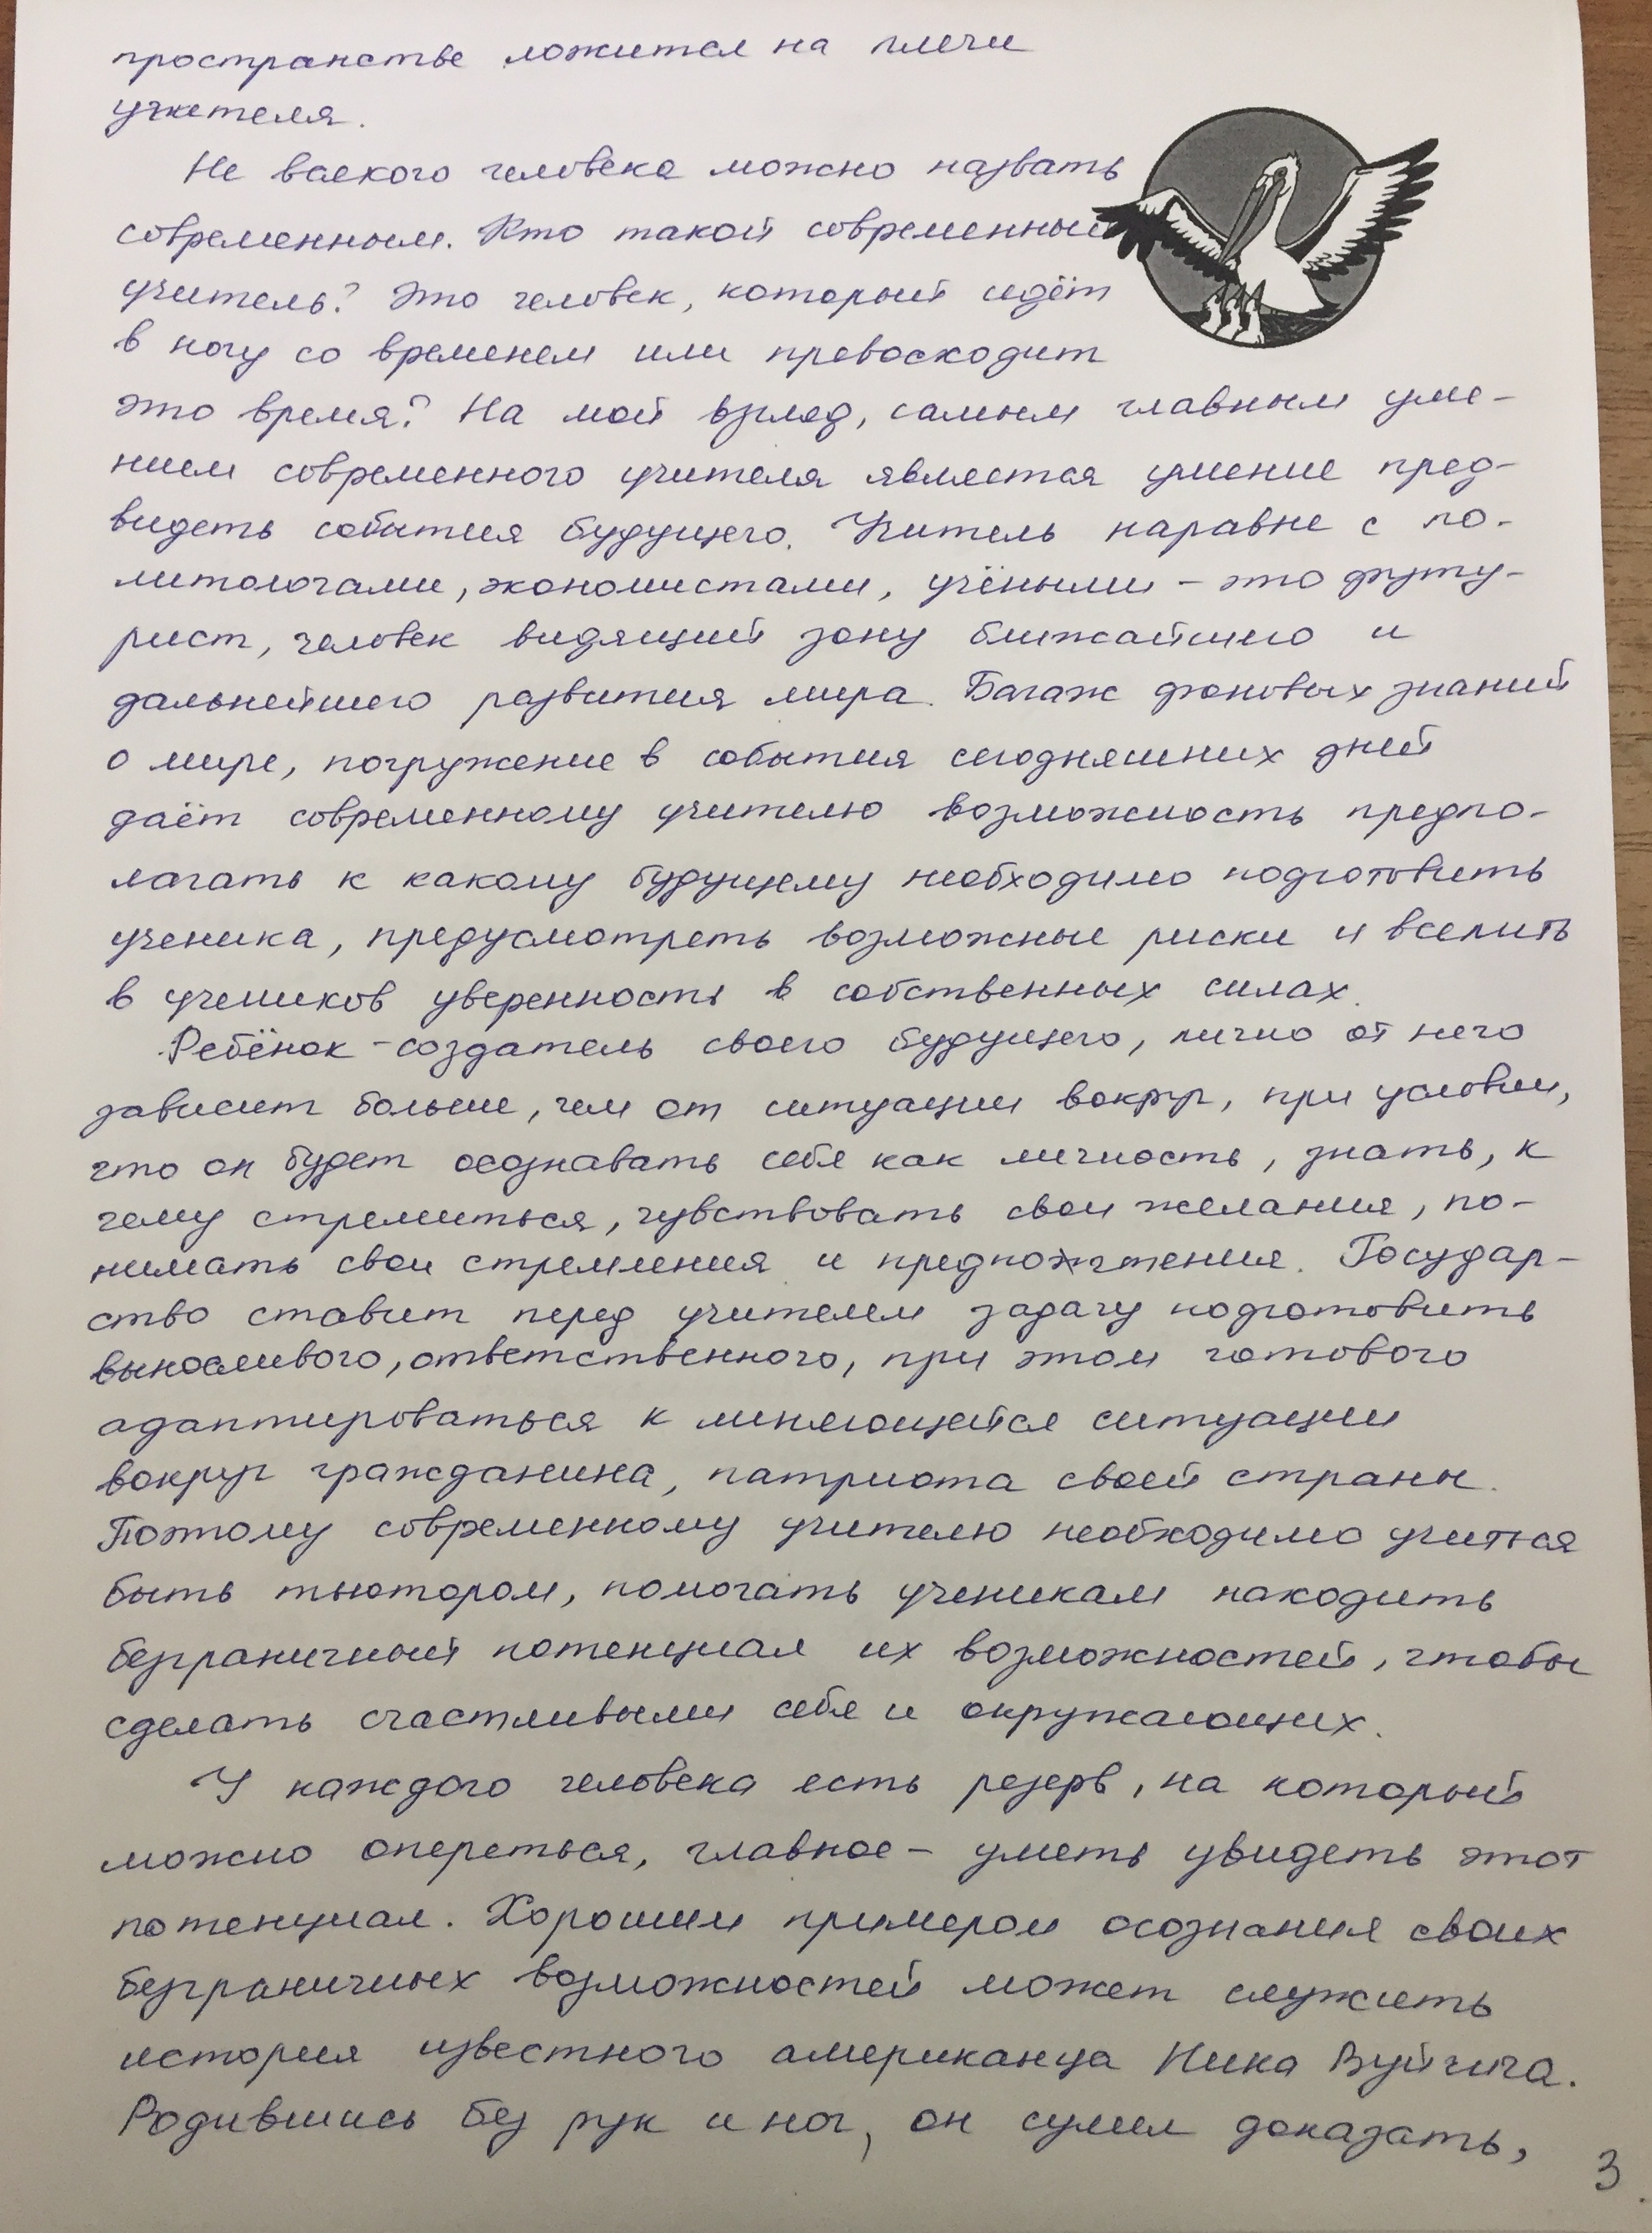 пространстве ложится на плечи
учителя.
Не всякого человека можно назвать
современным. Кто такой современный
учитель? Это человек, который идёт
в ногу со временем или превосходит
это время? На мой взгляд, самым главным уме-
нием современного учителя является умение пред-
видеть события будущего. Учитель наравне с по-
литологами, экономистами, учёными – это футу-
рист, человек видящий зону ближайшего и
дальнейшего развития мира. Багаж фоновых знаний
о мире, погружение в события сегодняшних дней
даёт современному учителю возможность предпо-
лагать к какому будущему необходимо подготовить
ученика, предусмотреть возможные риски и вселить
в учеников уверенность в собственных силах.
Ребёнок – создатель своего будущего, лично от него
зависит больше, чем от ситуации вокруг, при условии,
что он будет осознавать себя как личность, знать, к
чему стремиться, чувствовать свои желания, по-
нимать свои стремления и предпочтения. Государ-
ство ставит перед учителем задачу подготовить
выносливого, ответственного, при этом готового
адаптироваться к меняющейся ситуации
вокруг гражданина, патриота своей страны.
Поэтому современному учителю необходимо учиться
быть тьютором, помогать ученикам находить
безграничный потенциал их возможностей, чтобы
сделать счастливыми себя и окружающих.
У каждого человека есть резерв, на который
можно опереться, главное – уметь увидеть этот
потенциал. Хорошим примером осознания своих
безграничных возможностей может служить
история известного американца Ника Вуйчича.
Родившись без рук и ног, он сумел доказать,
3